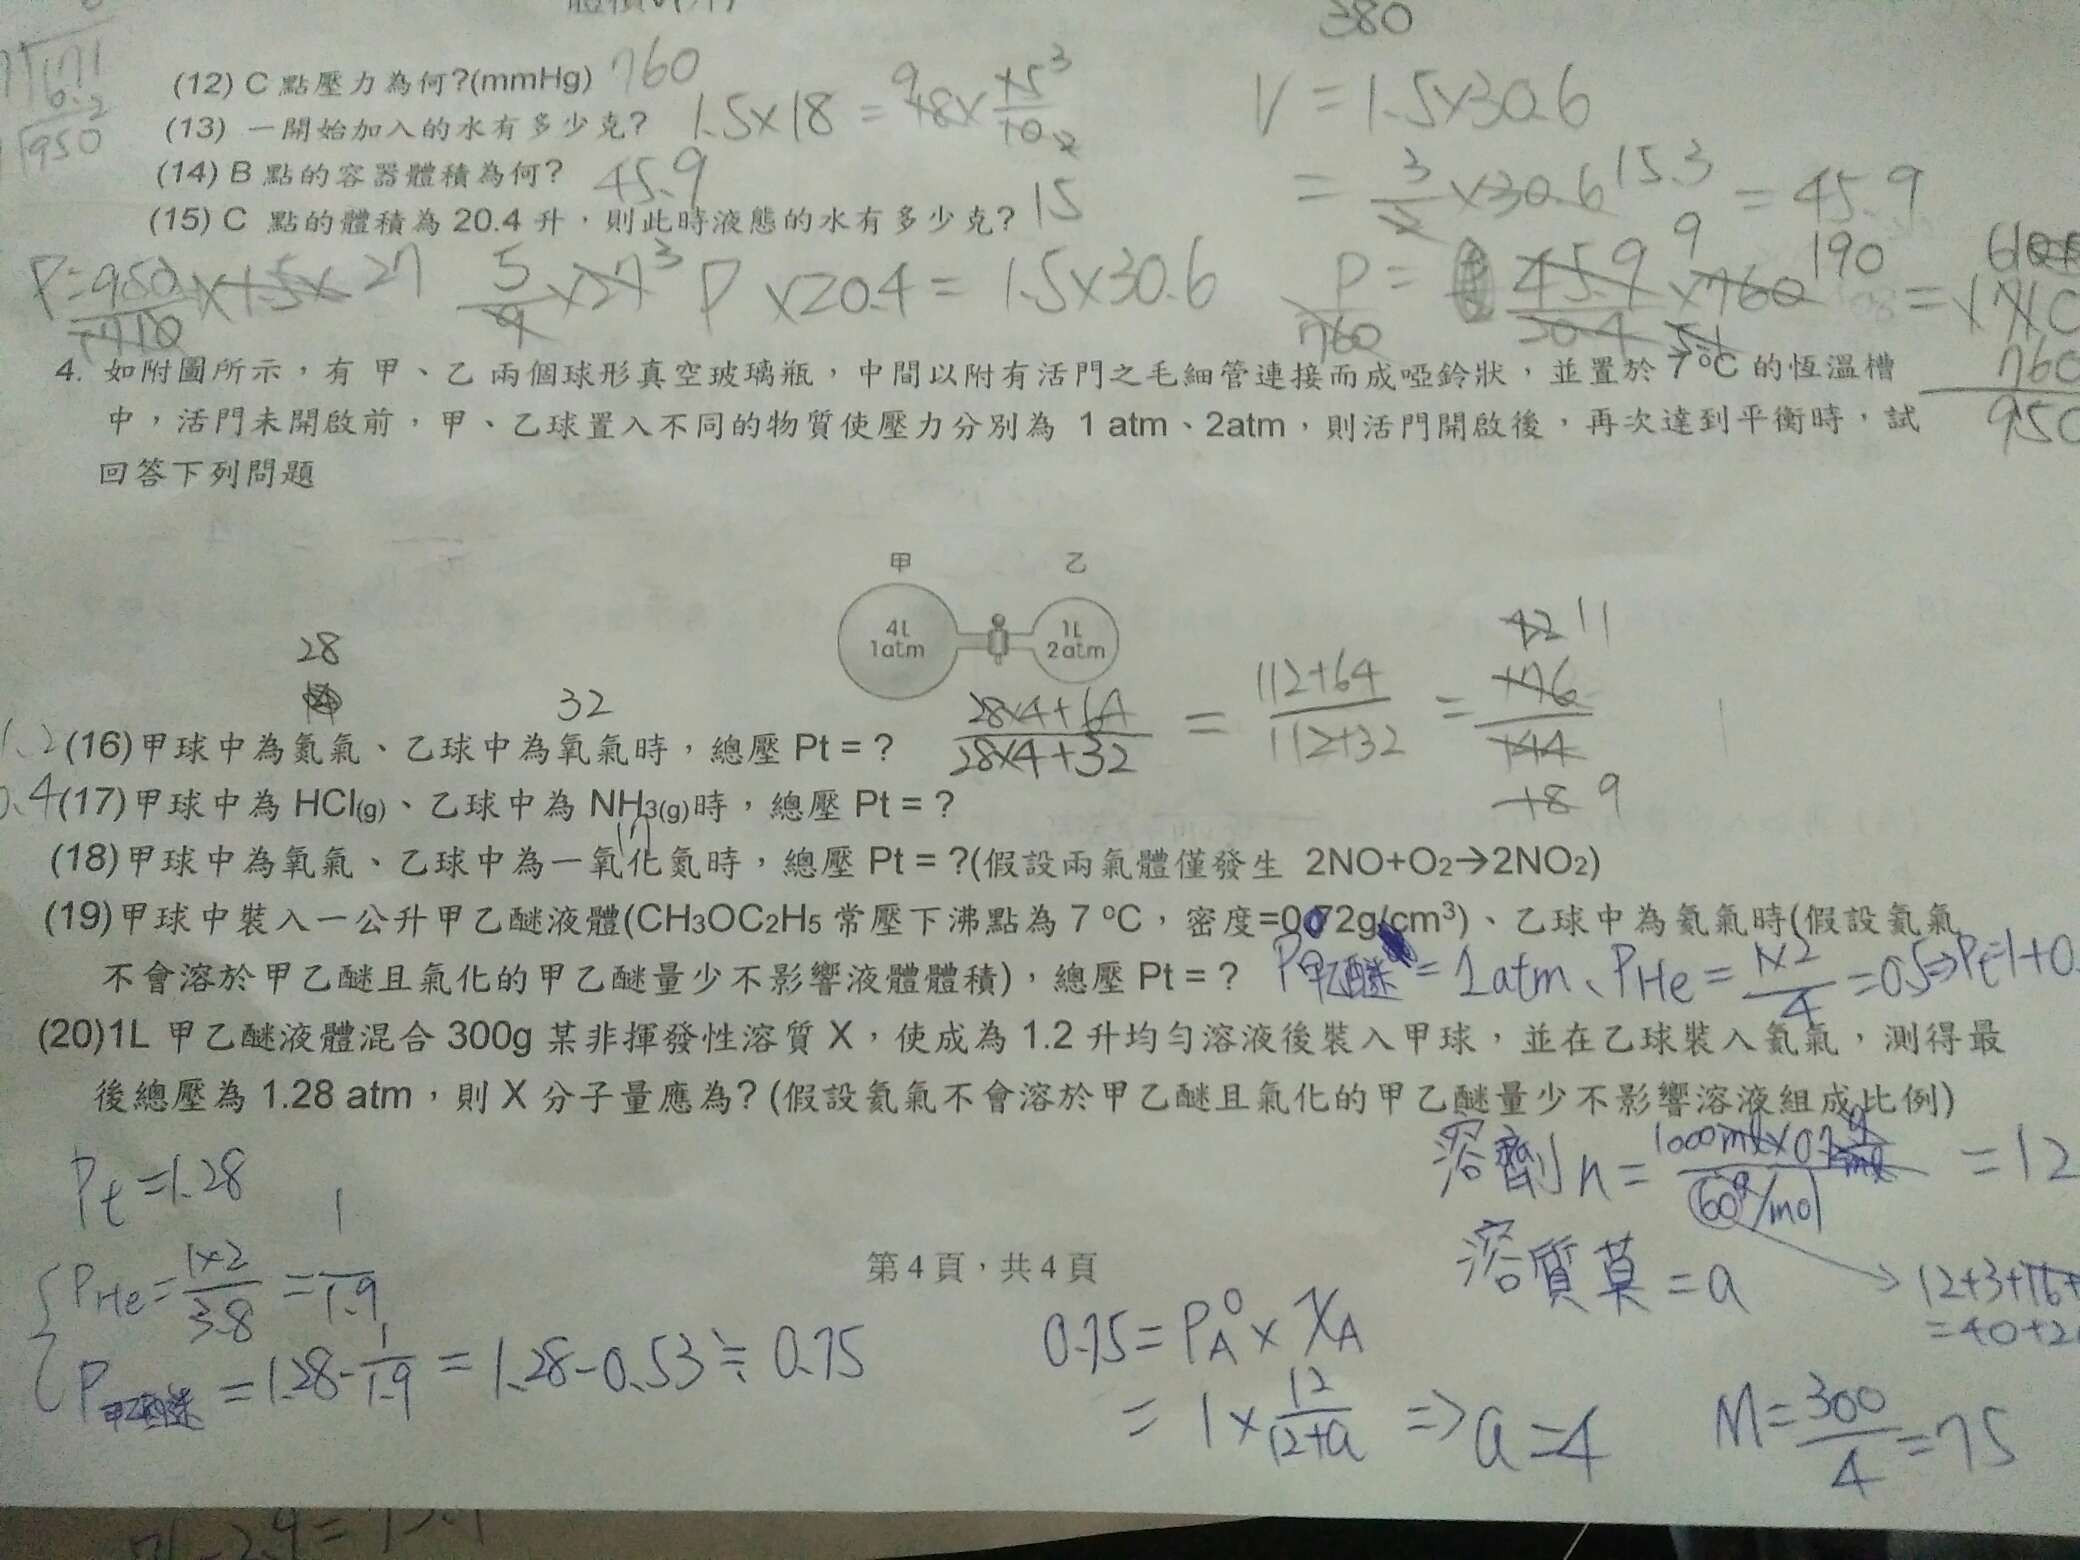 380
(12) C 點壓力為何?(mmHg) 760
(13) 一開始加入的水有多少克? 1.5×18 =
V = 1.5×30.6
(14) B 點的容器體積為何? 45.9
= 3/2 ×30.6 15.3 = 45.9
(15) C 點的體積為 20.4 升,則此時液態的水有多少克? 15
P × 20.4 = 1.5×30.6
190
760
950
4. 如附圖所示,有 甲、乙 兩個球形真空玻璃瓶,中間以附有活門之毛細管連接而成啞鈴狀,並置於 7 ºC 的恆溫槽
中,活門未開啟前,甲、乙球置入不同的物質使壓力分別為 1 atm、2atm,則活門開啟後,再次達到平衡時,試
回答下列問題
甲 乙
4L 1L
1atm 2atm
28
32
(28×4+64)/(28×4+32) = (112+64)/(112+32) = 176/144
11
18 9
1.2 (16)甲球中為氮氣、乙球中為氧氣時,總壓 Pt = ?
(17)甲球中為 HCl(g)、乙球中為 NH3(g)時,總壓 Pt = ?
17
(18)甲球中為氧氣、乙球中為一氧化氮時,總壓 Pt = ?(假設兩氣體僅發生 2NO+O2→2NO2)
(19)甲球中裝入一公升甲乙醚液體(CH3OC2H5 常壓下沸點為 7 ºC,密度=0.72g/cm3)、乙球中為氦氣時(假設氦氣
不會溶於甲乙醚且氣化的甲乙醚量少不影響液體體積),總壓 Pt = ? P甲乙醚 = 1atm、PHe = 1×2/4 = 0.5 ⇒ Pt=1+0.
(20)1L 甲乙醚液體混合 300g 某非揮發性溶質 X,使成為 1.2 升均勻溶液後裝入甲球,並在乙球裝入氦氣,測得最
後總壓為 1.28 atm,則 X 分子量應為? (假設氦氣不會溶於甲乙醚且氣化的甲乙醚量少不影響溶液組成比例)
Pt = 1.28
溶劑 n = = 12
60g/mol
PHe = 1×2/3.8 = 1/1.9
溶質莫 = a
12+3+16+
= 40+2
第 4 頁,共 4 頁
P甲乙醚 = 1.28 - 1/1.9 = 1.28 - 0.53 ≒ 0.75
0.75 = PA⁰ × XA
= 1 × 12/(12+a) ⇒ a = 4
M = 300/4 = 75